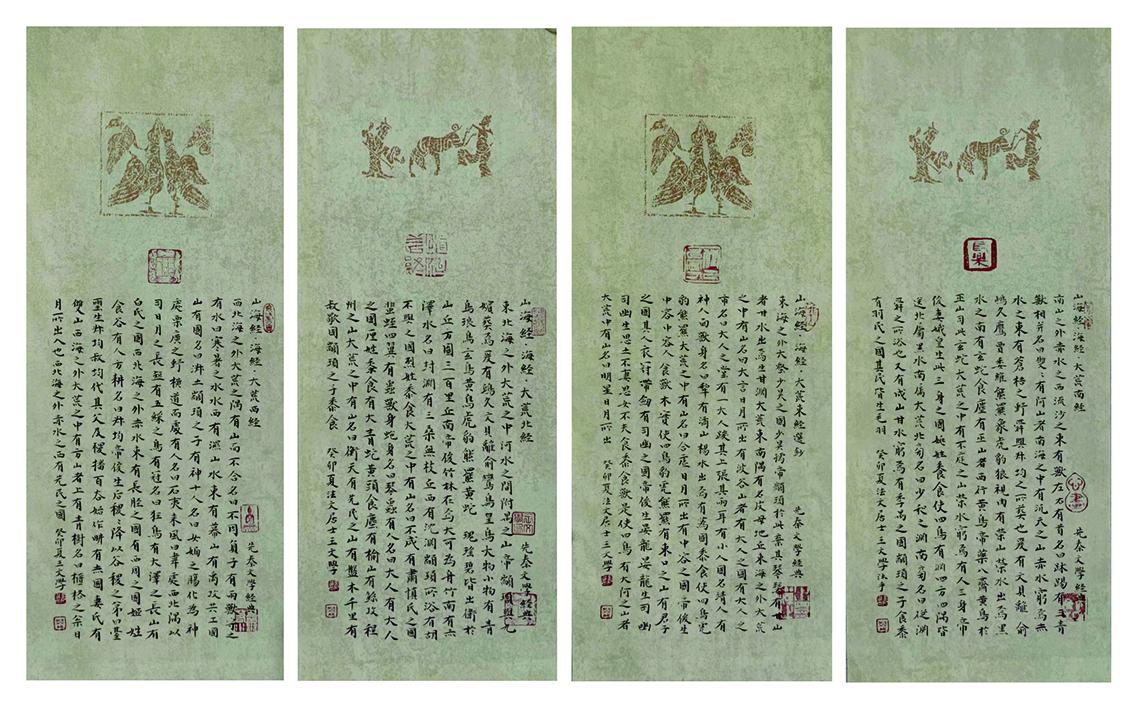 山海經·海經·大荒南經
先秦文學經典
南山之外赤水之西流沙之東有獸左右有首名曰跊踢有三青
獸相并名曰雙〻有阿山者南海之中有氾天之山赤水窮焉
水之東有蒼梧之野舜與叔均之所葬也爰有文貝離俞
鴟久鷹賈委維熊羆象虎豹狼視肉有榮山榮水出焉黑
水之南有玄蛇食麈有巫山者西行黃鳥帝藥八齋黃鳥於
巫山司此玄蛇大荒之中有不庭之山榮水窮焉有人三身帝
俊妻娥皇生此三身之國姚姓黍食使四鳥有淵四方四隅皆
達北屬黑水南屬大荒北旁名曰少和之淵南旁名曰從淵
舜之所浴也又有成山甘水窮焉有季禺之國顓頊之子食黍
有羽民之國其民皆生毛羽 癸卯夏法文居士王文學
山海經·海經·大荒東經選鈔
東海之外大壑少昊之國少昊孺帝顓頊於此棄其琴瑟有甘山
者甘水出焉生甘淵大荒東南隅有名皮母地丘東海之外大荒
之中有山名曰大言日月所出有波谷山者有大人之國有大人之
市名曰大人之堂有一大人踆其上張其兩耳有小人國名靖人有
神人面獸身名曰犂有潏山楊水出焉有蒍國黍食使四鳥虎
豹熊羆大荒之中有山名曰合虛日月所出有中容之國帝俊生
中容中容人食獸木實使四鳥豹虎熊羆有東口之山有君子
之國其人衣冠帶劍有司幽之國帝俊生晏龍晏龍生司幽
司幽生思士不妻思女不夫食黍食獸是使四鳥有大阿之山者
大荒中有山名曰明星日月所出 癸卯夏法文居士王文學
山海經·海經·大荒北經
先秦文學經典
東北海之外大荒之中河水之間附禺之山帝顓頊與九
嬪葬焉爰有鴟久文貝離俞鸞鳥皇鳥大物小物有青
鳥琅鳥玄鳥黃鳥虎豹熊羆黃蛇 瑰瑤碧皆出衛於
山丘方圓三百里丘南帝俊竹林在焉大可為舟竹南有赤
澤水名曰封淵有三桑無枝丘西有沈淵顓頊所浴有胡
不與之國烈姓黍食大荒之中有山名曰不咸有肅慎氏之國
蜚蛭四翼有蟲獸身蛇身名曰琴蟲有人名曰大人有大人
之國釐姓黍食有大青蛇黃頭食麈有榆山有鯀攻程
州之山大荒之中有山名曰衡天有先民之山有盤木千里有
叔歜國顓頊之子黍食 癸卯夏法文居士王文學
山海經·海經·大荒西經
先秦文學經典
西北海之外大荒之隅有山而不合名曰不周負子有兩獸守之
有水曰寒暑之水水西有濕山水東有幕山有禹攻共工國
山有國名曰淑士顓頊之子有神十人名曰女媧之腸化為神
處栗廣之野橫道而處有人名曰石夷來風曰韋處西北隅以
司日月之長短有五綵之鳥有冠名曰狂鳥有大澤之長山有
白氏之國西北海之外赤水之東有長脛之國有西周之國姬姓
食谷有人方耕名曰叔均帝俊生后稷〻降以谷稷之弟曰臺
璽生叔均叔均代其父及稷播百谷始作耕有赤國妻氏有
雙山西海之外大荒之中有方山者上有青樹名曰櫃格之松日
月所出入也西北海之外赤水之西有先民之國 癸卯夏王文學